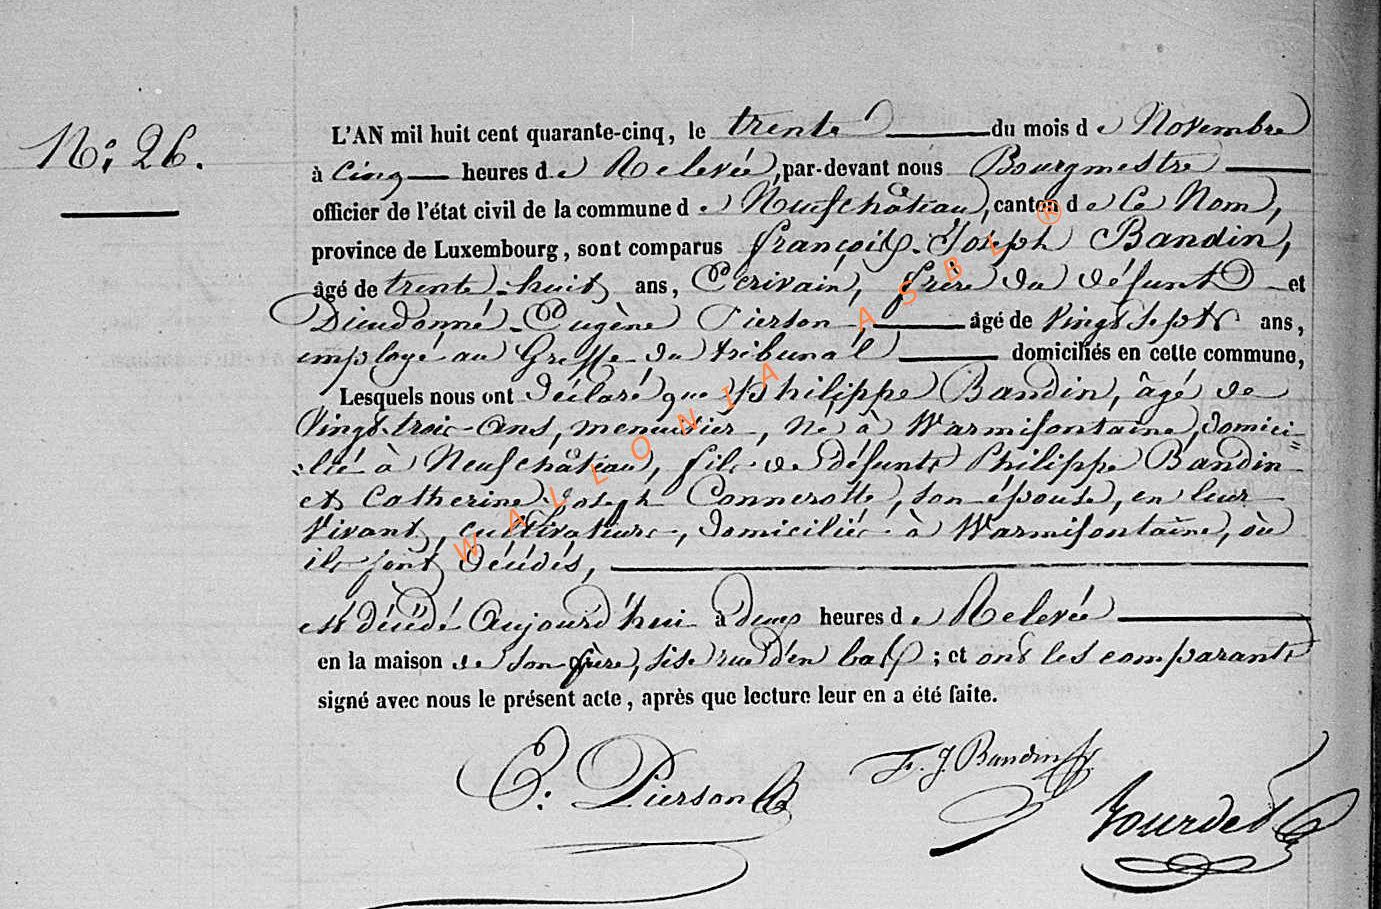 N.° 26.
L'AN mil huit cent quarante-cinq, le trente du mois de Novembre
à cinq heures de Relevée, par-devant nous Bourgmestre
officier de l'état civil de la commune de Neufchâteau, canton de Ce Nom,
province de Luxembourg, sont comparus françois-Joseph Bandin,
âgé de trente-huit ans, Ecrivain, frère du défunt et
Dieudonné-Eugène Pierson âgé de vingt sept ans,
employé au Greffe du tribunal domiciliés en cette commune,
Lesquels nous ont déclaré que Philippe Bandin, âgé de
vingt-trois ans, menuisier, né à Warmifontaine, domici=
=lié à Neufchâteau, fils de défunts Philippe Bandin
et Catherine-Joseph Connerotte, son épouse, en leur
vivant, cultivateurs, domiciliés à Warmifontaine, où
ils sont décédés,
est décédé Aujourd'hui à deux heures de Relevée
en la maison de son frère, sise rue d'en bas ; et ont les comparants
signé avec nous le présent acte, après que lecture leur en a été faite.
E. Pierson
F. J. Bandin
Gourdet
WALLONIA ASBL ®